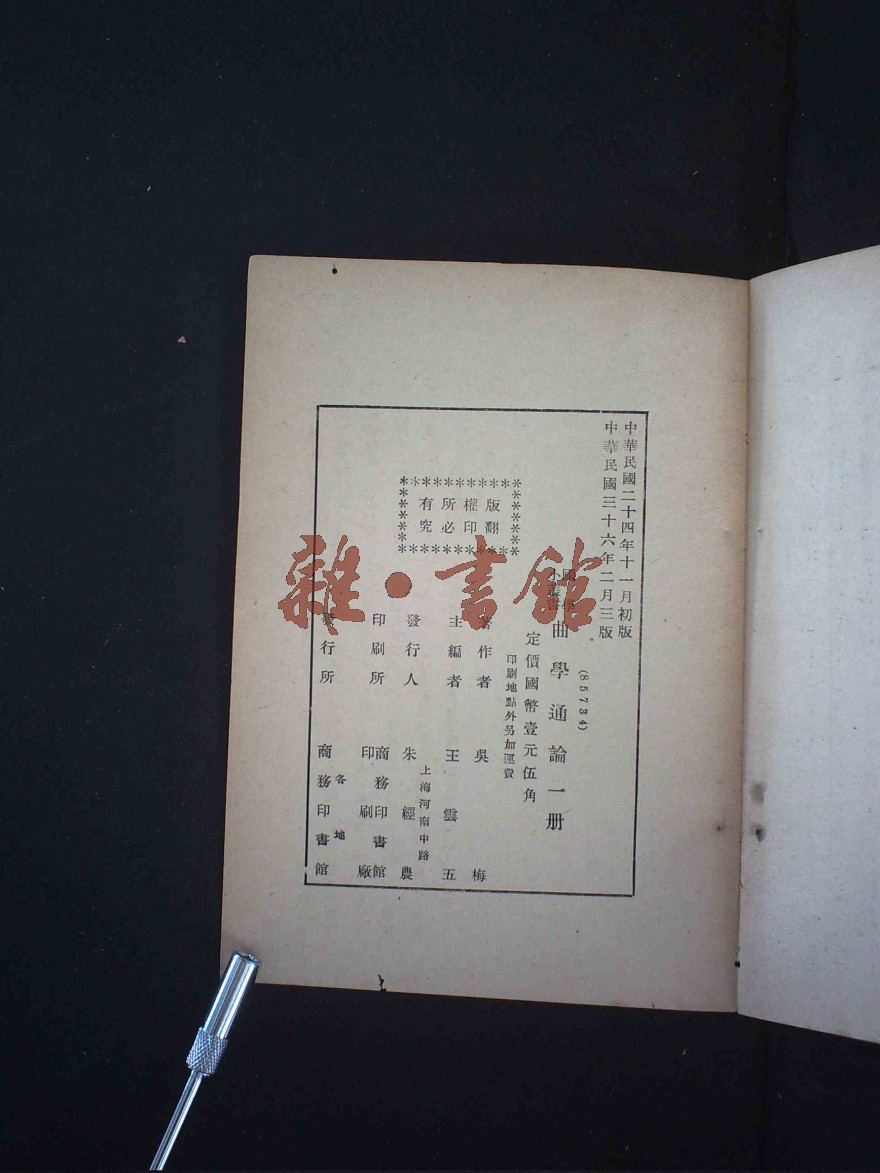 中華民國二十四年十一月初版
中華民國三十六年二月三版
(85734)
國學
小叢書
曲學通論一册
定價國幣壹元伍角
印刷地點外另加運費
版權所有
翻印必究
著作者 吳梅
主編者 王雲五
上海河南中路
發行人 朱經農
印刷所 商務印書館
印刷廠
發行所 商務印書館
各地
雜·書館